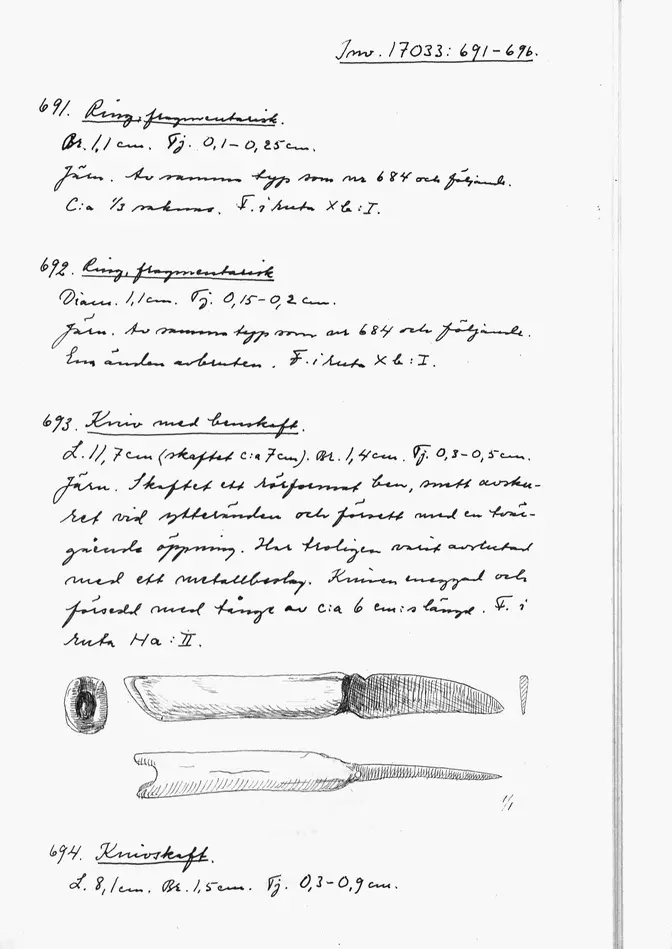 Inv. 17033: 691-696.
691. Ring, fragmentarisk.
Br. 1,1 cm. Tj. 0,1-0,25 cm.
Järn. Av samma typ som nr 684 och följande.
C:a 1/3 saknas. F. i ruta Xb:I.
692. Ring, fragmentarisk
Diam. 1,1 cm. Tj. 0,15-0,2 cm.
Järn. Av samma typ som nr 684 och följande.
Ena änden avbruten. F. i ruta Xb:I.
693. Kniv med benskaft.
L. 11,7 cm (skaftet c:a 7 cm). Br. 1,4 cm. Tj. 0,3-0,5 cm.
Järn. Skaftet ett rörformat ben, snett avsku-
ret vid ytteränden och försett med en tvär-
gående öppning. Har troligen varit avslutad
med ett metallbeslag. Kniven eneggad och
försedd med tånge av c:a 6 cm:s längd. F. i
ruta Ha:II.
1/1
694. Knivskaft.
L. 8,1 cm. Br. 1,5 cm. Tj. 0,3-0,9 cm.